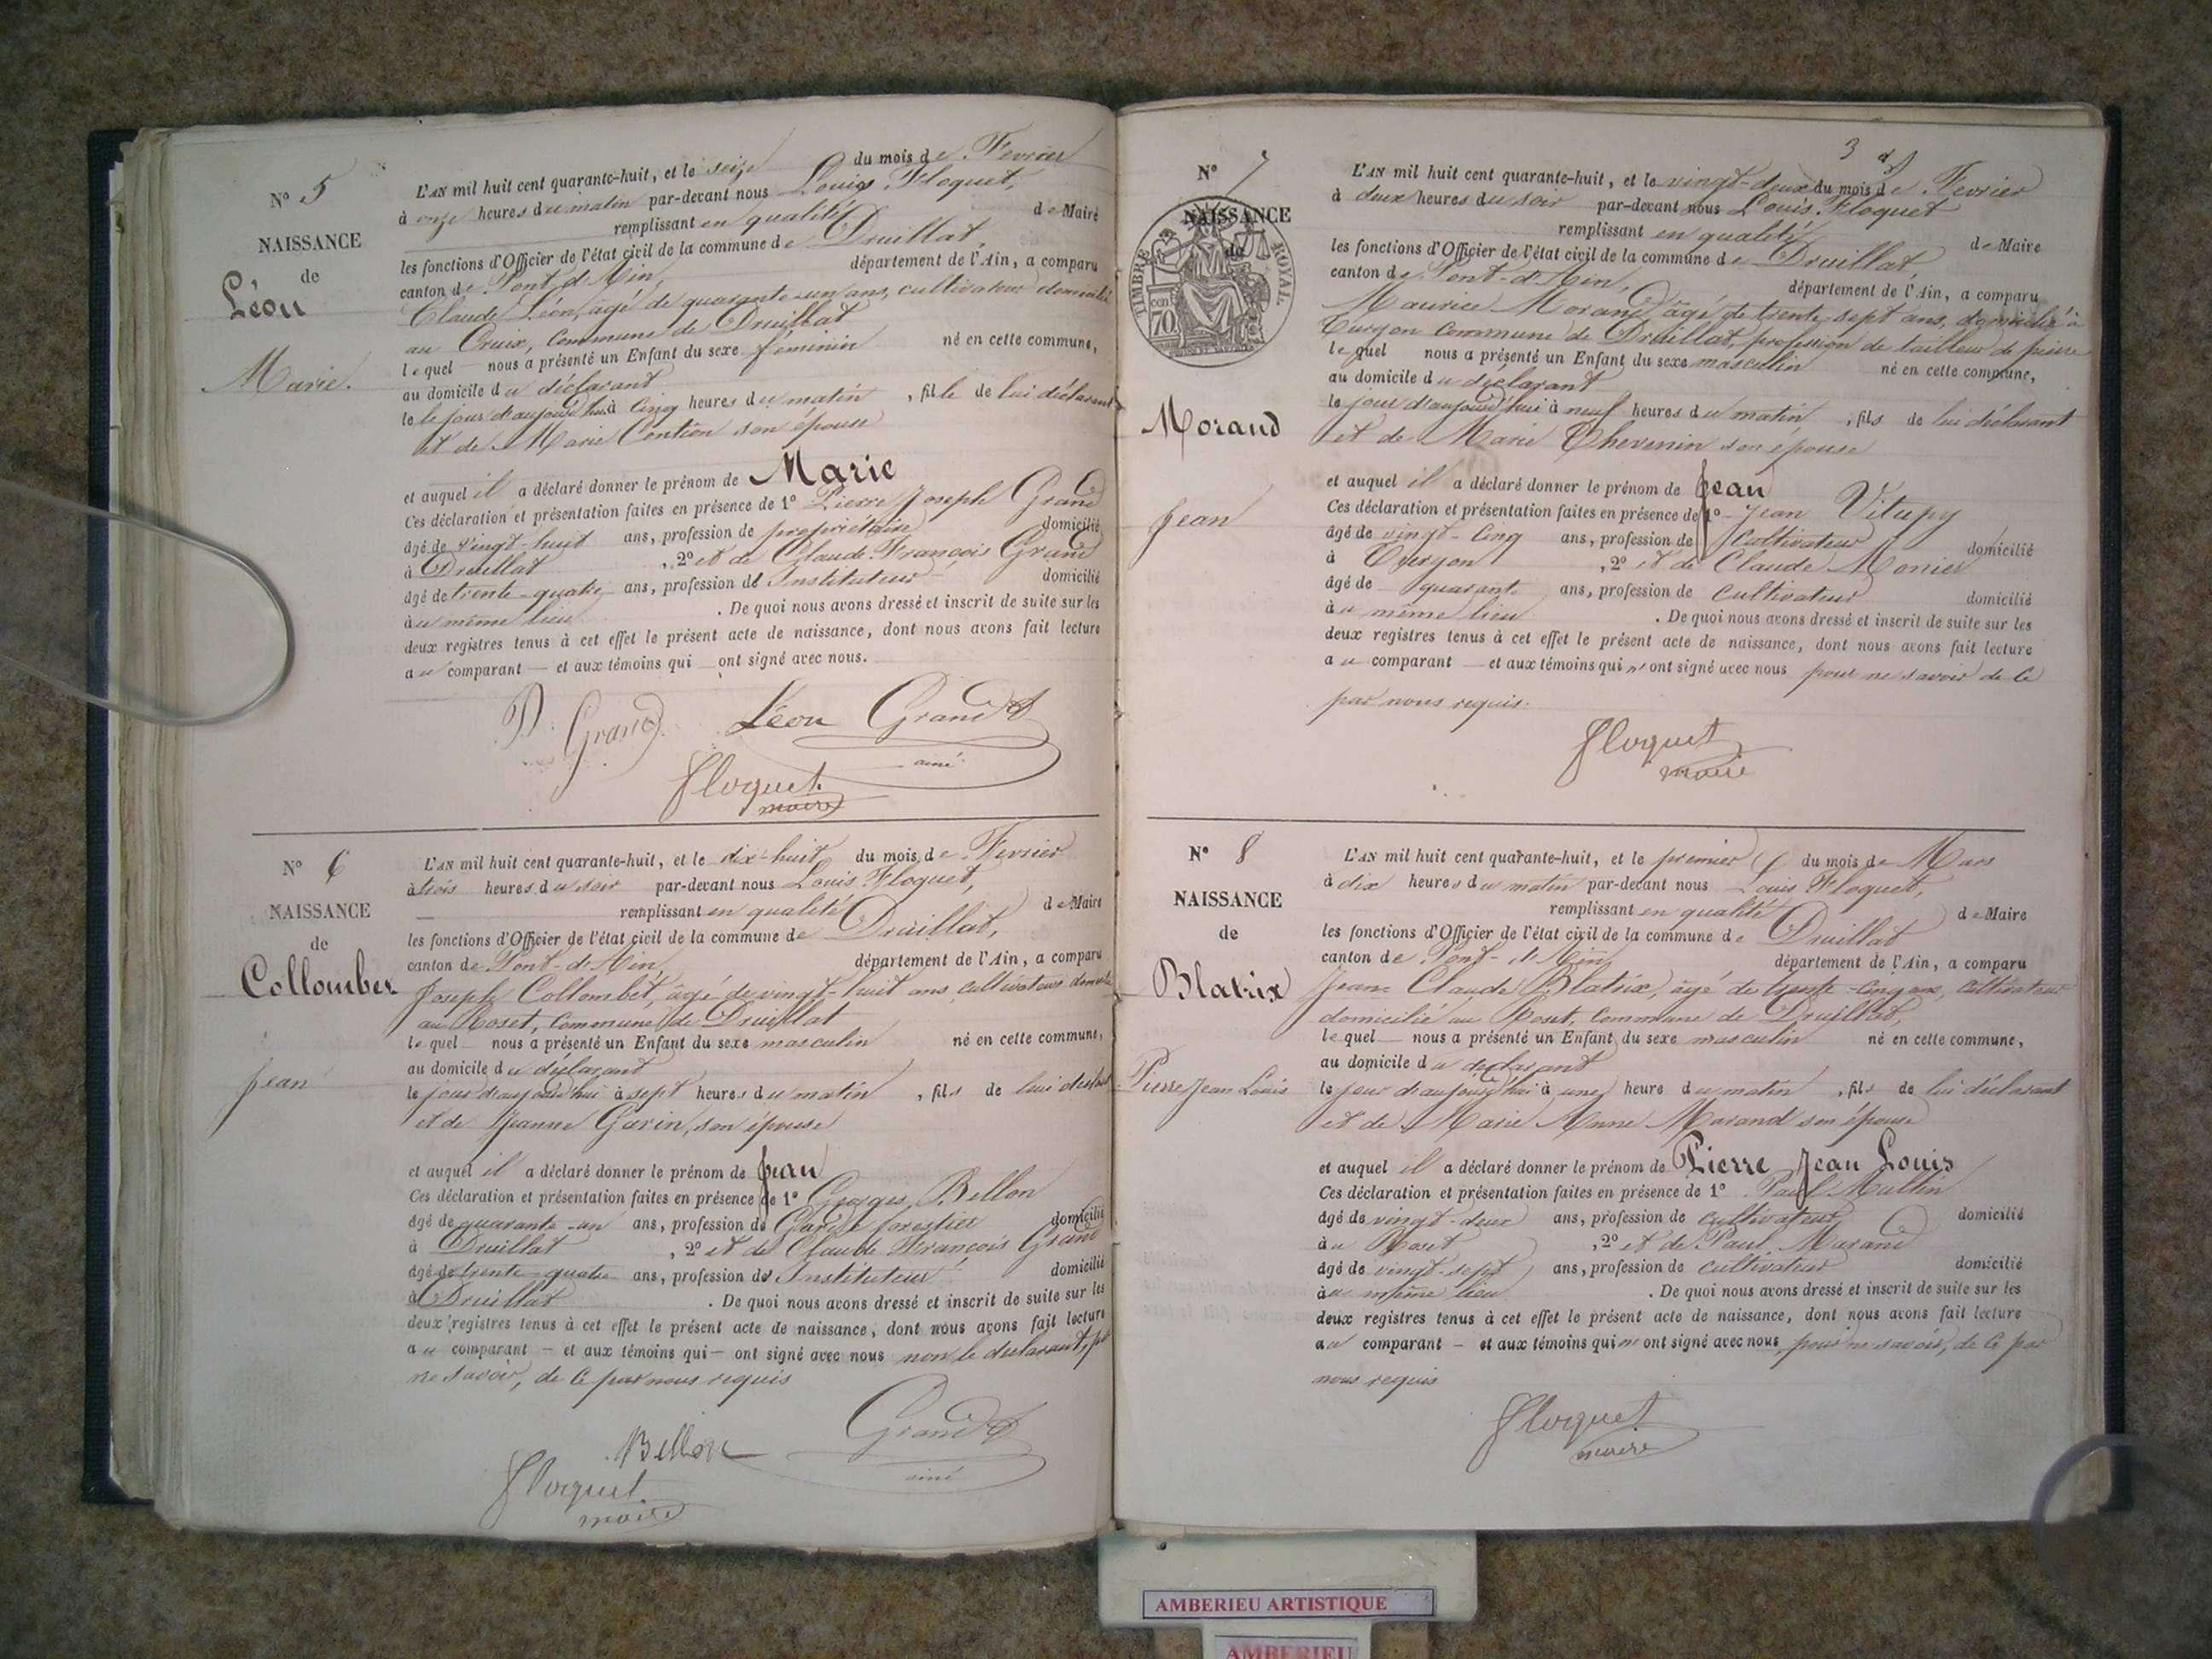 N° 5
NAISSANCE
de
Léon
Marie.
L'AN mil huit cent quarante-huit, et le seize du mois de Fevrier
à onze heures du matin par-devant nous Louis Floquet,
remplissant en qualité de Maire
les fonctions d'Officier de l'état civil de la commune de Druillat,
canton de Pont-d'Ain, département de l'Ain, a comparu
Claude Léon, agé de quarante-un ans, cultivateur domicilié
au Cruix, commune de Druillat
lequel nous a présenté un Enfant du sexe féminin né en cette commune,
au domicile du déclarant
le le jour d'aujourd'hui à cinq heures du matin, fille de lui déclarant
et de Marie Contion son épouse
et auquel il a déclaré donner le prénom de Marie
Ces déclaration et présentation faites en présence de 1° Pierre Joseph Grand
âgé de vingt-huit ans, profession de propriétaire domicilié
à Druillat, 2° et de Claude François Grand
âgé de trente-quatre ans, profession de Instituteur domicilié
au même lieu. De quoi nous avons dressé et inscrit de suite sur les
deux registres tenus à cet effet le présent acte de naissance, dont nous avons fait lecture
au comparant — et aux témoins qui ont signé avec nous.
P. Grand Léon Grand
ainé
Floquet
maire
N° 6
NAISSANCE
de
Collombet
Jean
L'AN mil huit cent quarante-huit, et le dix-huit du mois de Fevrier
à trois heures du soir par-devant nous Louis Floquet,
remplissant en qualité de Maire
les fonctions d'Officier de l'état civil de la commune de Druillat,
canton de Pont-d'Ain, département de l'Ain, a comparu
Joseph Collombet, âgé de vingt-huit ans cultivateur
au Roset, commune de Druillat
lequel nous a présenté un Enfant du sexe masculin né en cette commune,
au domicile du déclarant
le jour d'aujourd'hui à sept heures du matin, fils de lui
et de Jeanne Garin, son épouse
et auquel il a déclaré donner le prénom de Jean
Ces déclaration et présentation faites en présence de 1° Georges Bellon
âgé de quarante-un ans, profession de Garde forestier domicilié
à Druillat, 2° et de Claude François Grand
âgé de trente-quatre ans, profession de Instituteur domicilié
à Druillat. De quoi nous avons dressé et inscrit de suite sur les
deux registres tenus à cet effet le présent acte de naissance, dont nous avons fait lecture
au comparant — et aux témoins qui — ont signé avec nous non le declarant,
ne savoir, de ce par nous requis
Bellon Grand
ainé
Floquet
maire
3
N° 7
NAISSANCE
de
TIMBRE ROYAL
70 cen
Morand
Jean
L'AN mil huit cent quarante-huit, et le vingt-deux du mois de Fevrier
à deux heures du soir par-devant nous Louis Floquet
remplissant en qualité de Maire
les fonctions d'Officier de l'état civil de la commune de Druillat,
canton de Pont-d'Ain, département de l'Ain, a comparu
Maurice Morand, âgé de trente-sept ans, domicilié à
Turgon commune de Druillat, profession de tailleur de pierre
lequel nous a présenté un Enfant du sexe masculin né en cette commune,
au domicile du déclarant
le jour d'aujourd'hui à neuf heures du matin, fils de lui déclarant
et de Marie Thevenin son épouse
et auquel il a déclaré donner le prénom de Jean
Ces déclaration et présentation faites en présence de 1° Jean Vitupy
âgé de vingt-cinq ans, profession de Cultivateur domicilié
à Turgon, 2° et de Claude Monier
âgé de quarante ans, profession de Cultivateur domicilié
au même lieu. De quoi nous avons dressé et inscrit de suite sur les
deux registres tenus à cet effet le présent acte de naissance, dont nous avons fait lecture
au comparant — et aux témoins qui n'ont signé avec nous pour ne savoir de ce
par nous requis.
Floquet
maire
N° 8
NAISSANCE
de
Blatrix
Pierre Jean Louis
L'AN mil huit cent quarante-huit, et le premier du mois de Mars
à dix heures du matin par-devant nous Louis Floquet,
remplissant en qualité de Maire
les fonctions d'Officier de l'état civil de la commune de Druillat
canton de Pont-d'Ain, département de l'Ain, a comparu
Jean Claude Blatrix, âgé de trente-cinq ans, cultivateur
domicilié au Rout, Commune de Druillat,
lequel nous a présenté un Enfant du sexe masculin né en cette commune,
au domicile du declarant
le jour d'aujourd'hui à une heure du matin, fils de lui déclarant
et de Marie Anne Marand son épouse
et auquel il a déclaré donner le prénom de Pierre Jean Louis
Ces déclaration et présentation faites en présence de 1° Paul Multin
âgé de vingt-deux ans, profession de cultivateur domicilié
au Roset, 2° et de Paul Marand
âgé de vingt-sept ans, profession de cultivateur domicilié
au même lieu. De quoi nous avons dressé et inscrit de suite sur les
deux registres tenus à cet effet le présent acte de naissance, dont nous avons fait lecture
au comparant — et aux témoins qui n'ont signé avec nous pour ne savoir, de ce par
nous requis
Floquet
maire
AMBERIEU ARTISTIQUE
AMBERIEU